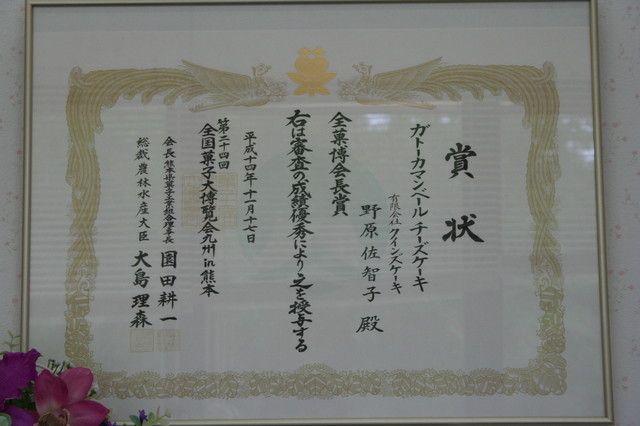 賞状
ガトーカマンベールチーズケーキ
有限会社 クインズケーキ
野原佐智子 殿
全菓博会長賞
右は審査の成績優秀により之を授与する
平成十四年十一月十七日
第二十四回
全国菓子大博覧会九州in熊本
会長熊本県菓子工業組合理事長 園田耕一
総裁農林水産大臣 大島理森